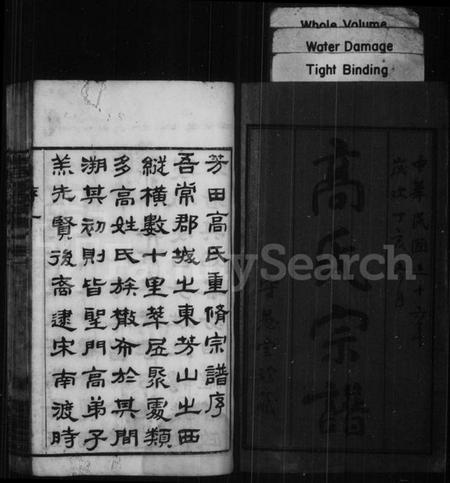 Whole Volume
Water Damage
Tight Binding
中華民國三十六年
歲次丁亥 月
高氏宗譜
芳田高氏重脩宗譜序
吾常郡城之東芳山之西
縱橫數十里萃居聚處類
多高姓氏族散布於其間
溯其初則皆聖門高弟子
羔先賢後裔逮宋南渡時
FamilySearch